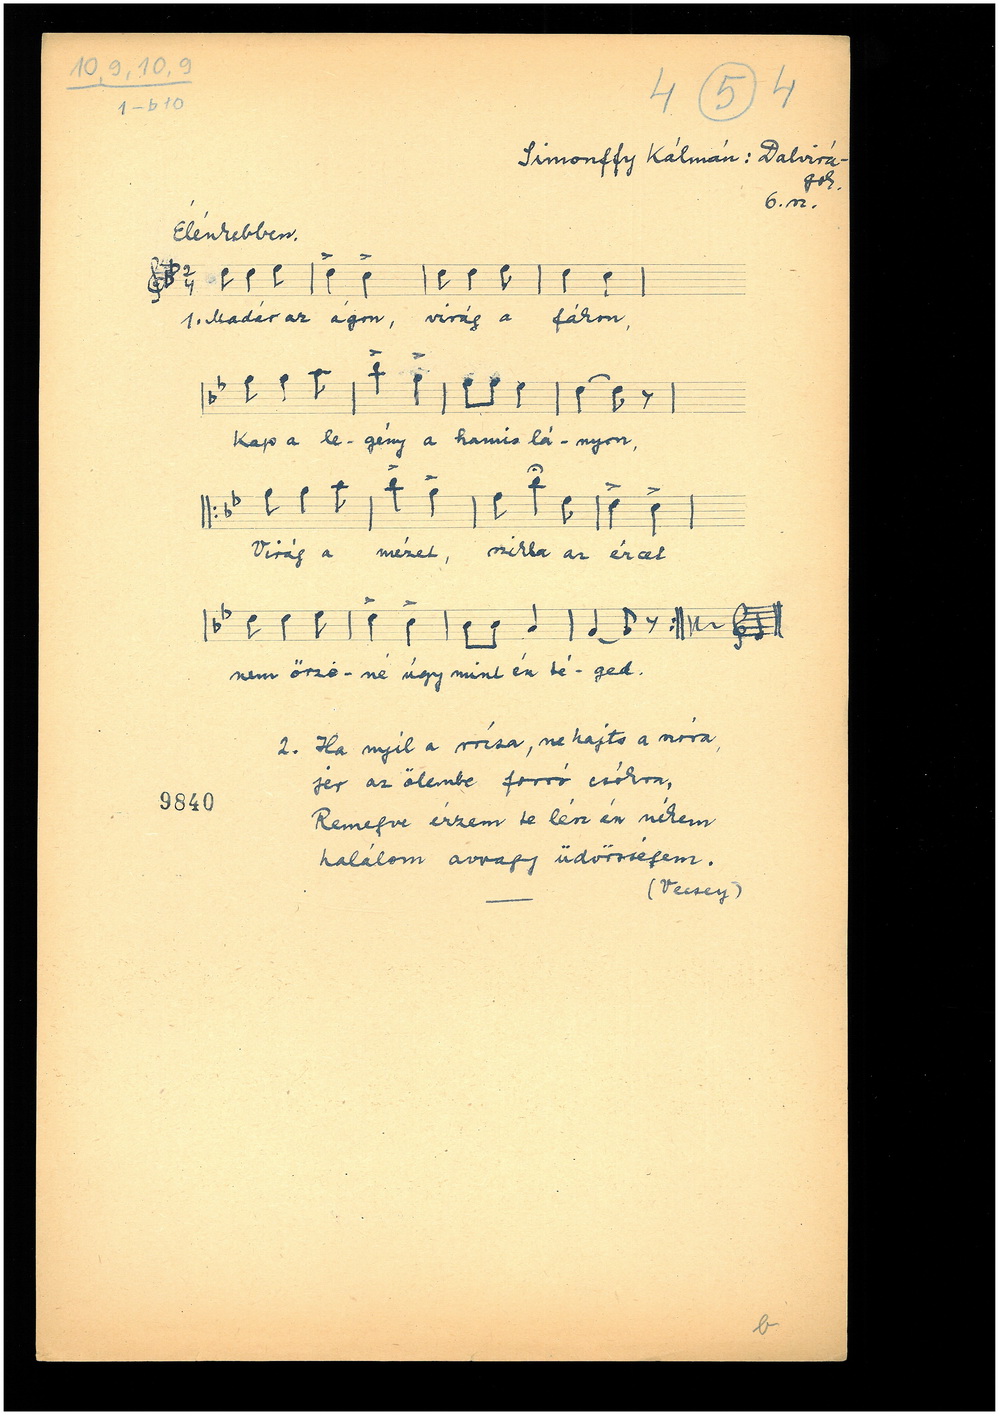 10, 9, 10, 9
1-b10
4 5 4
Simonffy Kálmán: Dalvirá-
gok.
6. sz.
Élénkebben.
2
4
1. Madár az ágon, virág a fákon,
Kap a le- gény a hamis lá - nyon,
Virág a mézet, szikla az ércet
nem őrzö - né úgy mint én té - ged.
2. Ha nyíl a rózsa, ne hajts a szóra,
jer az ölembe forró csókra,
Remegve érzem te léssz én nékem
halálom avvagy üdvösségem.
9840
(Vecsey)
b